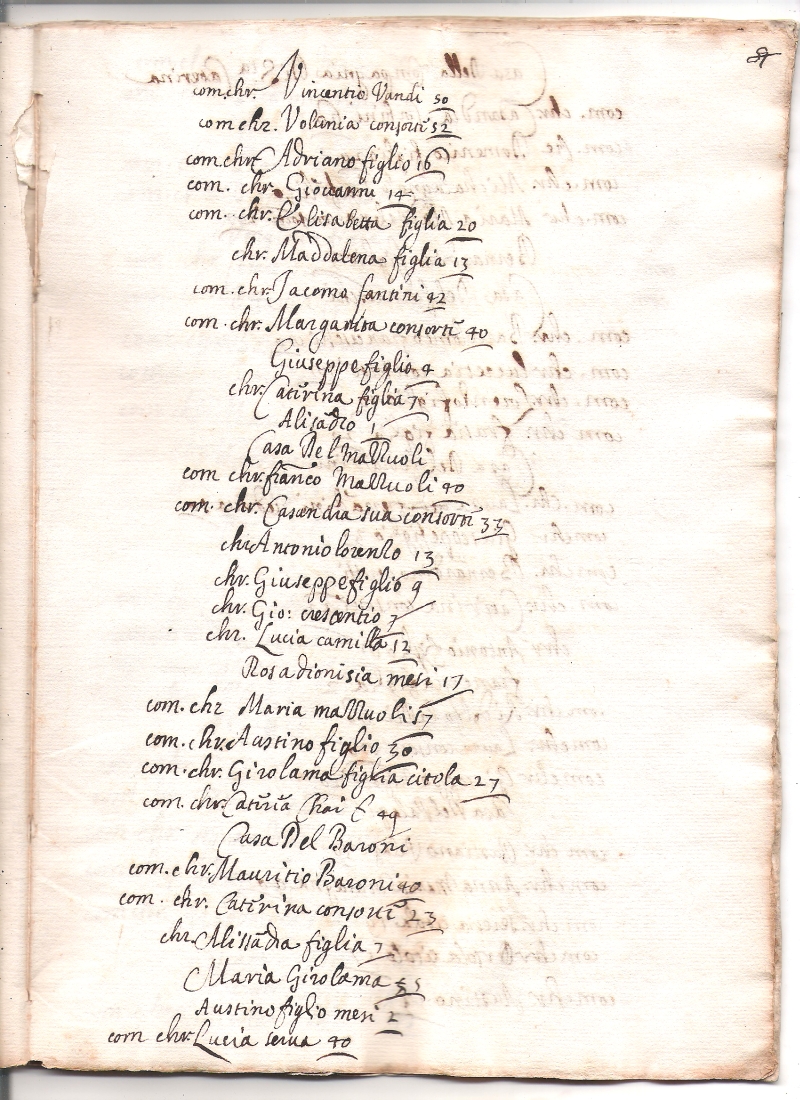 com. chr. Vincentio Vandi 50
com chr. Volunia consorte 52
com. chr. Adriano figlio 16
com. chr. Giovanni 14
com. chr. Elisabetta figlia 20
chr. Maddalena figlia 13
com. chr. Jacomo fantini 42
com. chr. Margarita consorte 40
Giuseppe figlio 4
chr. Caterina figlia 7
Alisādro 1
Casa Del mazzuoli
com chr. franco Mazzuoli 40
com. chr. Casandra sua consorte 33
chr. Antonio lorenzo 13
chr. Giuseppe figlio 9
chr. Gio: crescentio 7
chr. Lucia camilla 12
Rosa dionisia mesi 17
com. chr Maria mazzuoli 57
com. chr. Austino figlio 30
com. chr. Girolama figlia citola 27
com. chr. 49
Casa Del Baroni
com. chr. Mauritio Baroni 40
com. chr. Caterina consorte 23
chr. Alissādra figlia 7
Maria Girolama 5
Austino figlio mesi 2
com chr. Lucia serva 40